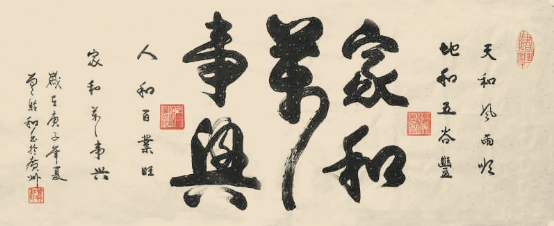 天和風雨順
地和五谷豐
家和
萬
事興
人和百業旺
家和萬事興
歲在庚子年夏
於廣州